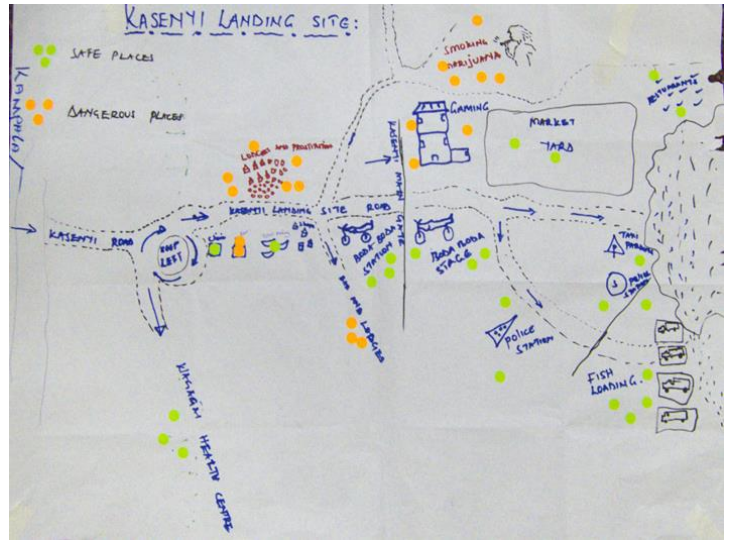 KASENYI LANDING SITE:
SAFE PLACES
DANGEROUS PLACES
KAMPALA/
SMOKING
MARIJUANA
GAMING
RESTURANTS
MARKET
YARD
LODGES AND PROSTITUTION
KASENYI MAIN GATE
KASENYI LANDING SITE ROAD
KASENYI ROAD
KEEP
LEFT
BODA BODA
STATION
BODA BODA
STAGE
TAXI
PARKING
POLICE
STATION
BAR AND LODGES
FISH
LOADING.
HEALTH CENTRE